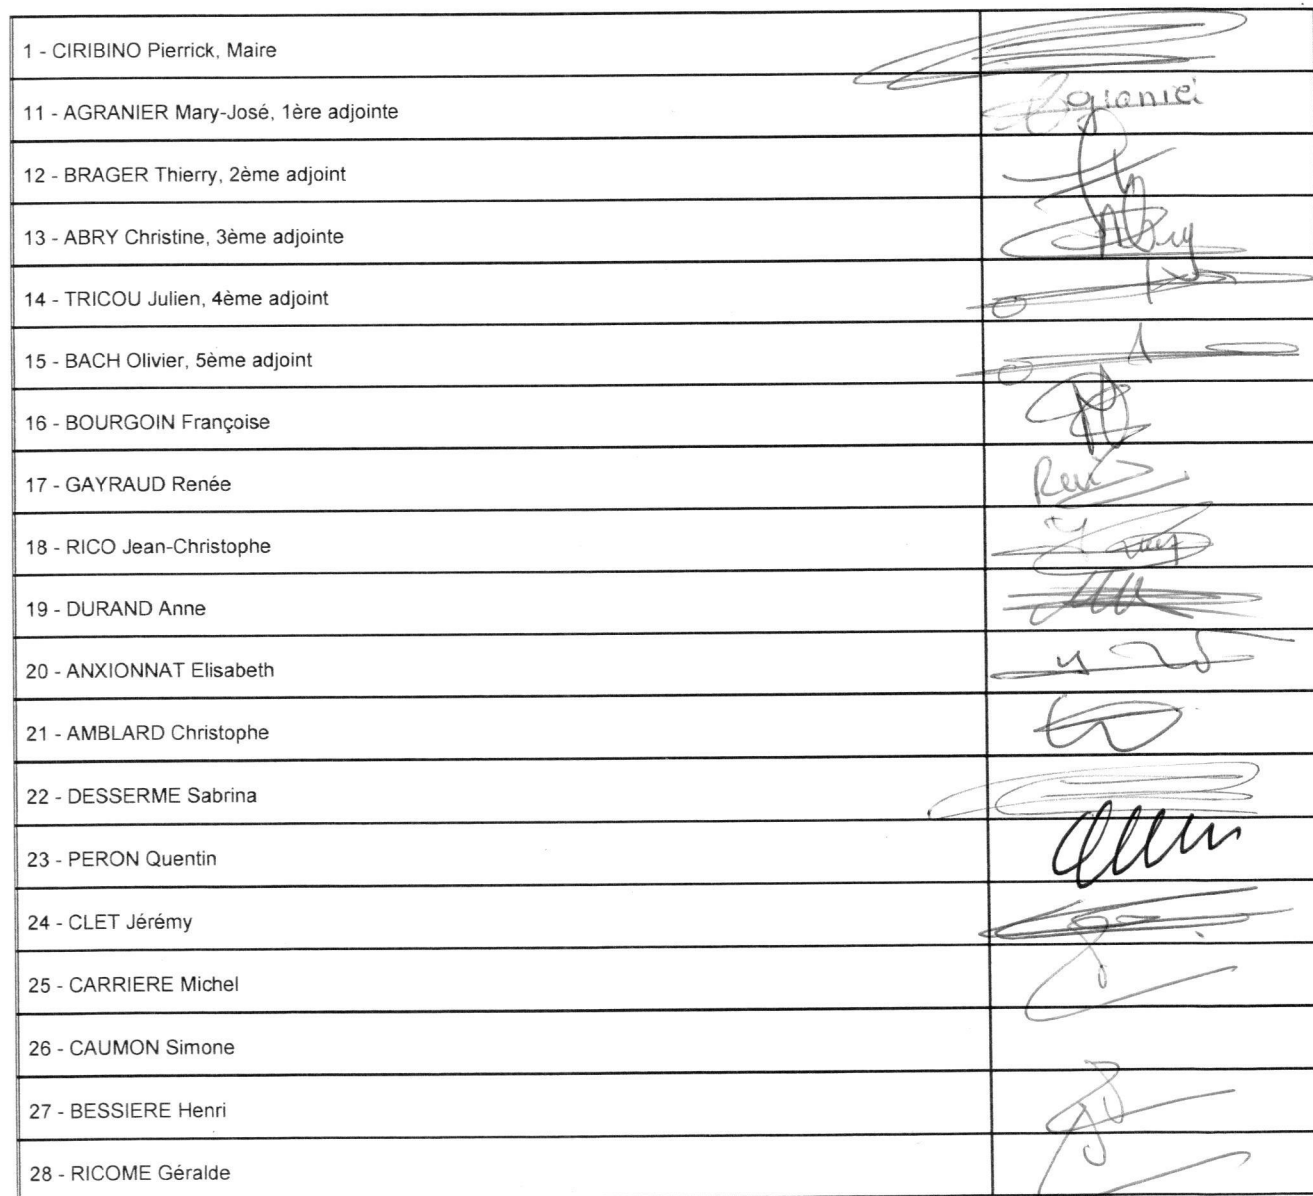 1 - CIRIBINO Pierrick, Maire
11 - AGRANIER Mary-José, 1ère adjointe
Agranier
12 - BRAGER Thierry, 2ème adjoint
13 - ABRY Christine, 3ème adjointe
Abry
14 - TRICOU Julien, 4ème adjoint
15 - BACH Olivier, 5ème adjoint
16 - BOURGOIN Françoise
17 - GAYRAUD Renée
18 - RICO Jean-Christophe
19 - DURAND Anne
20 - ANXIONNAT Elisabeth
21 - AMBLARD Christophe
22 - DESSERME Sabrina
23 - PERON Quentin
24 - CLET Jérémy
25 - CARRIERE Michel
26 - CAUMON Simone
27 - BESSIERE Henri
28 - RICOME Géralde